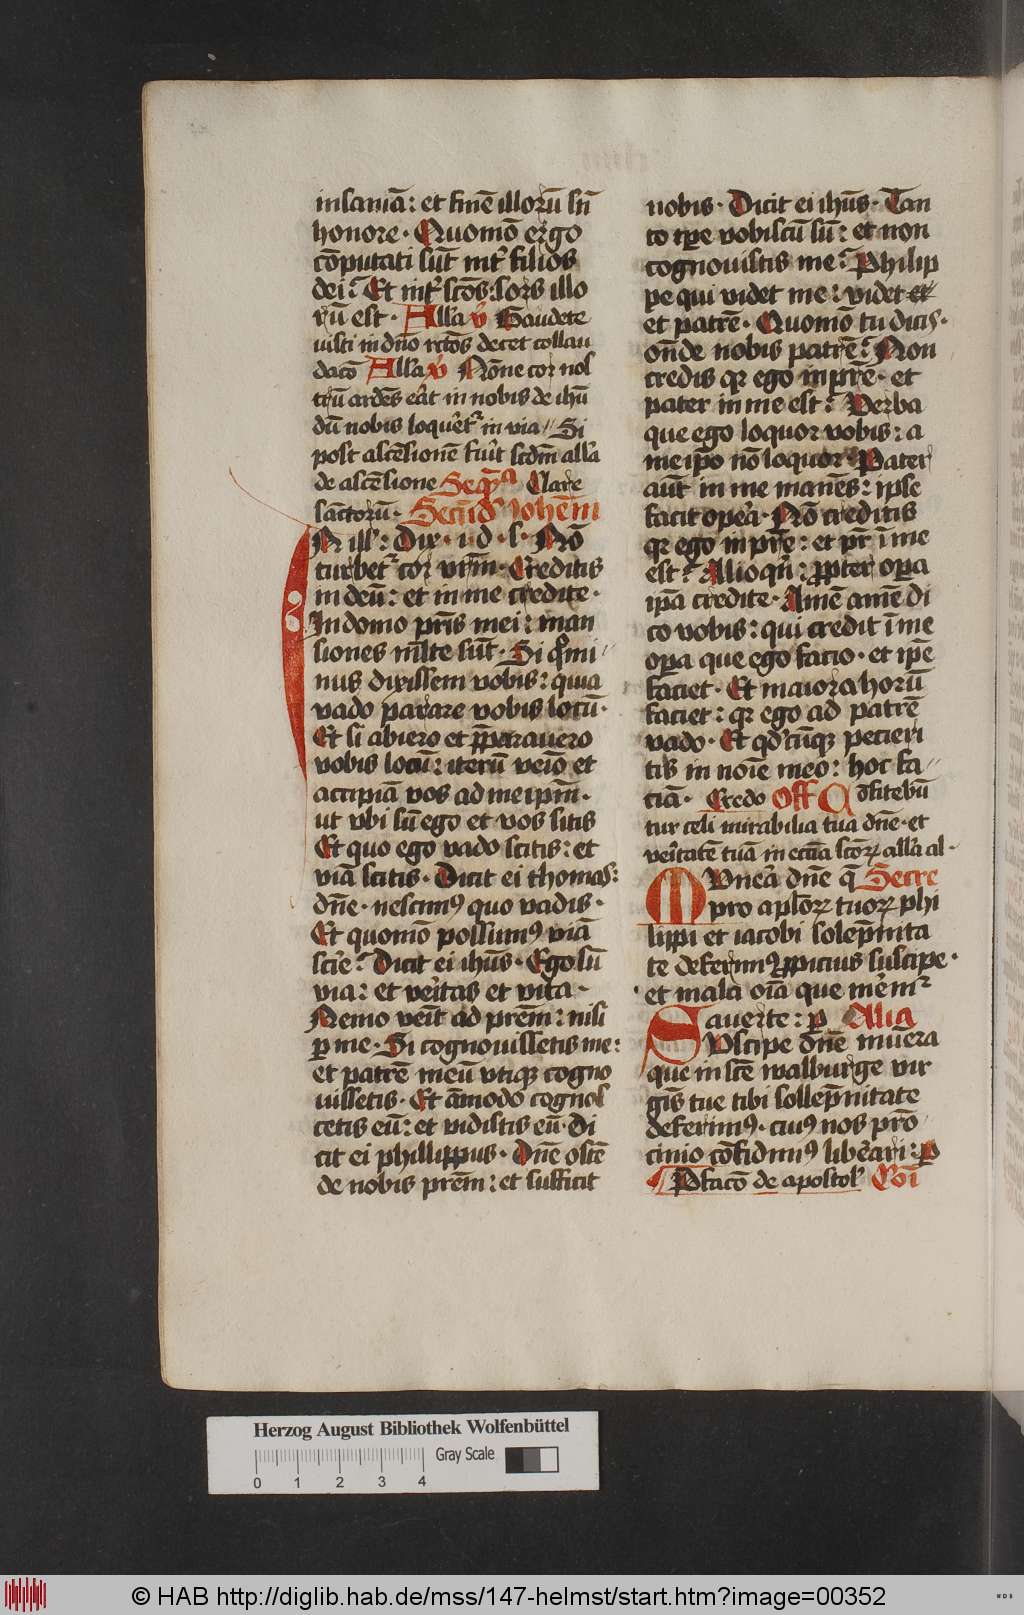 insaniā: et finē illorū sn̄
honore · Quomō ergo
cōputati sūt int̾ filios
dei: Et int̾ scōs: sors illo
rū est · All'a v̄ Gaudete
iusti in dn̄o rctōs decet collau
dacō All'a v̄ Nōne cor nos
trū ardēs eāt in nobis de ihū
dū nobis loquet̾ in via // Si
post ascēsionē fuit scdm̄ all'a
de ascēsione Seqa Clare
sāctorū · Secūd' Iohēm
IN ill': Dix · i · d · s · Nō
turbet̾ cor vrm̄ · Creditis
in deū: et in me credite ·
In domo pr̄is mei: man
siones ml̄te sūt · Si qo mi
nus dixissem vobis: quia
vado parare vobis locū ·
Et si abiero et p̄parauero
vobis locū: iterū veīo et
accipiā vos ad me ipm̄ ·
ut vbi sū ego et vos sitis
Et quo ego vado scitis: et
viā scitis · Dicit ei thomas:
dn̄e · nescimꝰ quo vadis ·
Et quomō possumꝰ viā
scīe: Dicit ei ihūs · Ego sū
via: et veītas et vita ·
Nemo veīt ad prēm: nisi
ꝑ me · Si cognouissetis me:
et patrē meū vtiqꝫ cogno
uissetis · Et āmodo cognos
cetis eū: et vidistis eū · Di
cit ei phillippus · Dn̄e ostē
de nobis prēm: et sufficit
nobis · Dicit ei ihūs · Tan
to tp̄e vobiscū sū: et non
cognouistis me: Philip
pe qui videt me: videt et
et patrē · Quomō tu dicis ·
oñde nobis patrē: Non
credis qꝛ ego in prē · et
pater in me est: Verba
que ego loquor vobis: a
me ip̄o nō loquor · Pater
aūt in me manēs: ipse
facit opeā · Nō creditis
qꝛ ego in prē: et pr̄ ī me
est: Alioqn̄: ꝓpter opa
ipā credite · Amē amē di
co vobis: qui credit ī me
opa que ego facio · et ip̄e
faciet · Et maiora horū
faciet: qꝛ ego ad patrē
vado · Et qd'cūqꝫ pecieri
tis in noīe meo: hoc fa //
ciā · Credo Off Cōfitebū
tur celi mirabilia tua dn̄e · et
veītatē tuā in ecc̄ia scōꝝ all'a al ·
MVnea dn̄e q̄ Secre
pro ap̄loꝝ tuoꝝ phi
lippi et iacobi solēpnita
te deferimꝰ ꝓpicius suscipe ·
et mala oīa que mēm̾
auerte: ꝑ Alia
SVscipe dn̄e munera
que in scē walburge vir
gīs tue tibi sollēpnitate
deferimꝰ · cuiꝰ nos prō
cinio cōfidimꝰ liberari: ꝑ
Pfacō de apostol' Cōi
Herzog August Bibliothek Wolfenbüttel
Gray Scale
0 1 2 3 4
© HAB http://diglib.hab.de/mss/147-helmst/start.htm?image=00352